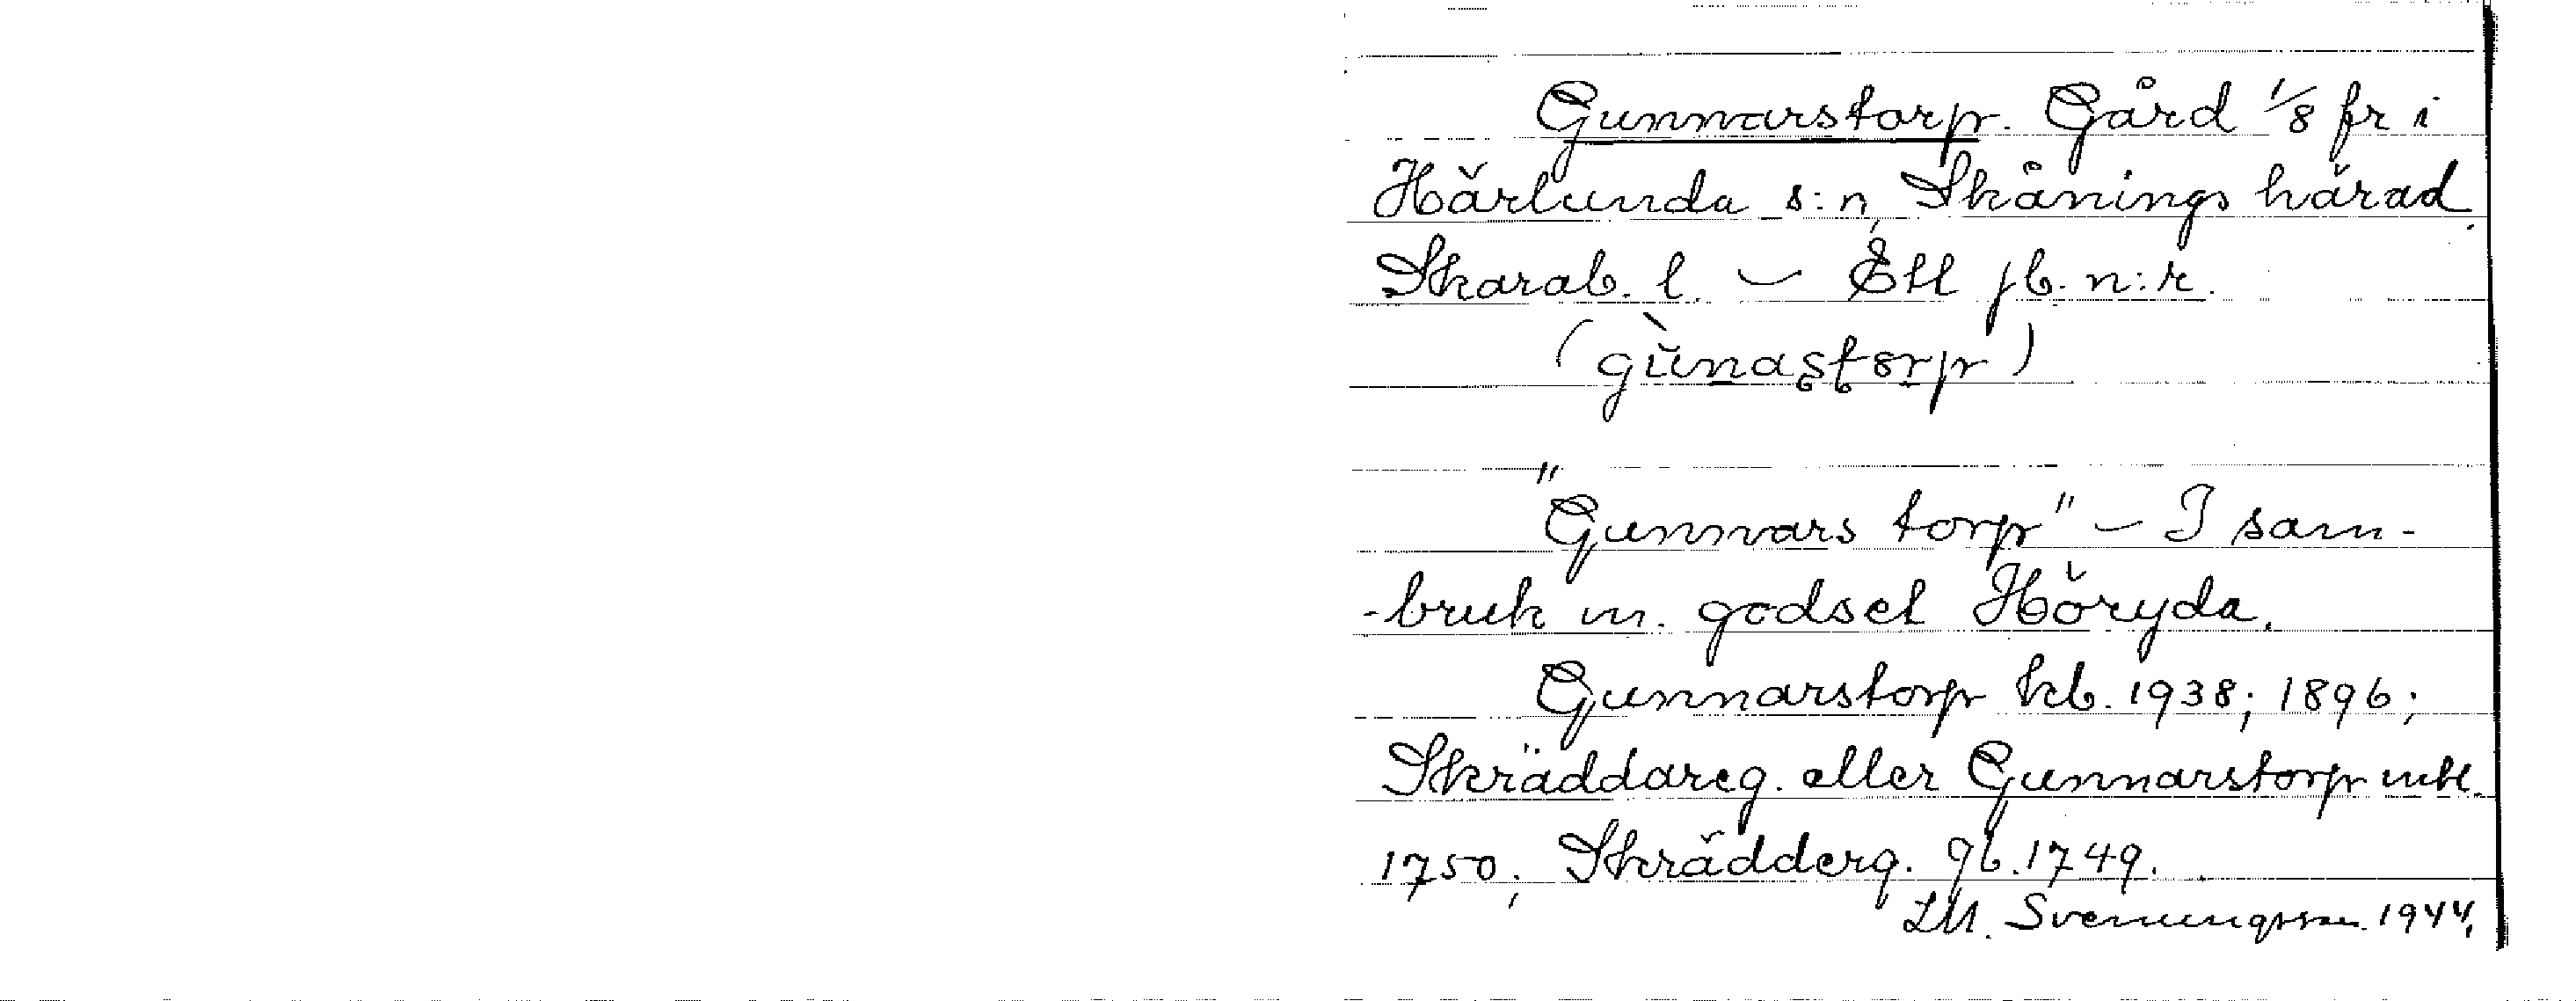 Gunnarstorp. Gård 1/8 fr i
Härlunda s:n, Skånings härad.
Skarab. l. – Ett jb. n:r.
(gùnastorp)
"Gunnars torp" – I sam-
-bruk m. godset Höryda.
Gunnarstorp kb. 1938; 1896;
Skräddareg. eller Gunnarstorp mtl.
1750; Skrädderg. gb. 1749.
LM. Svenungsson 1944.